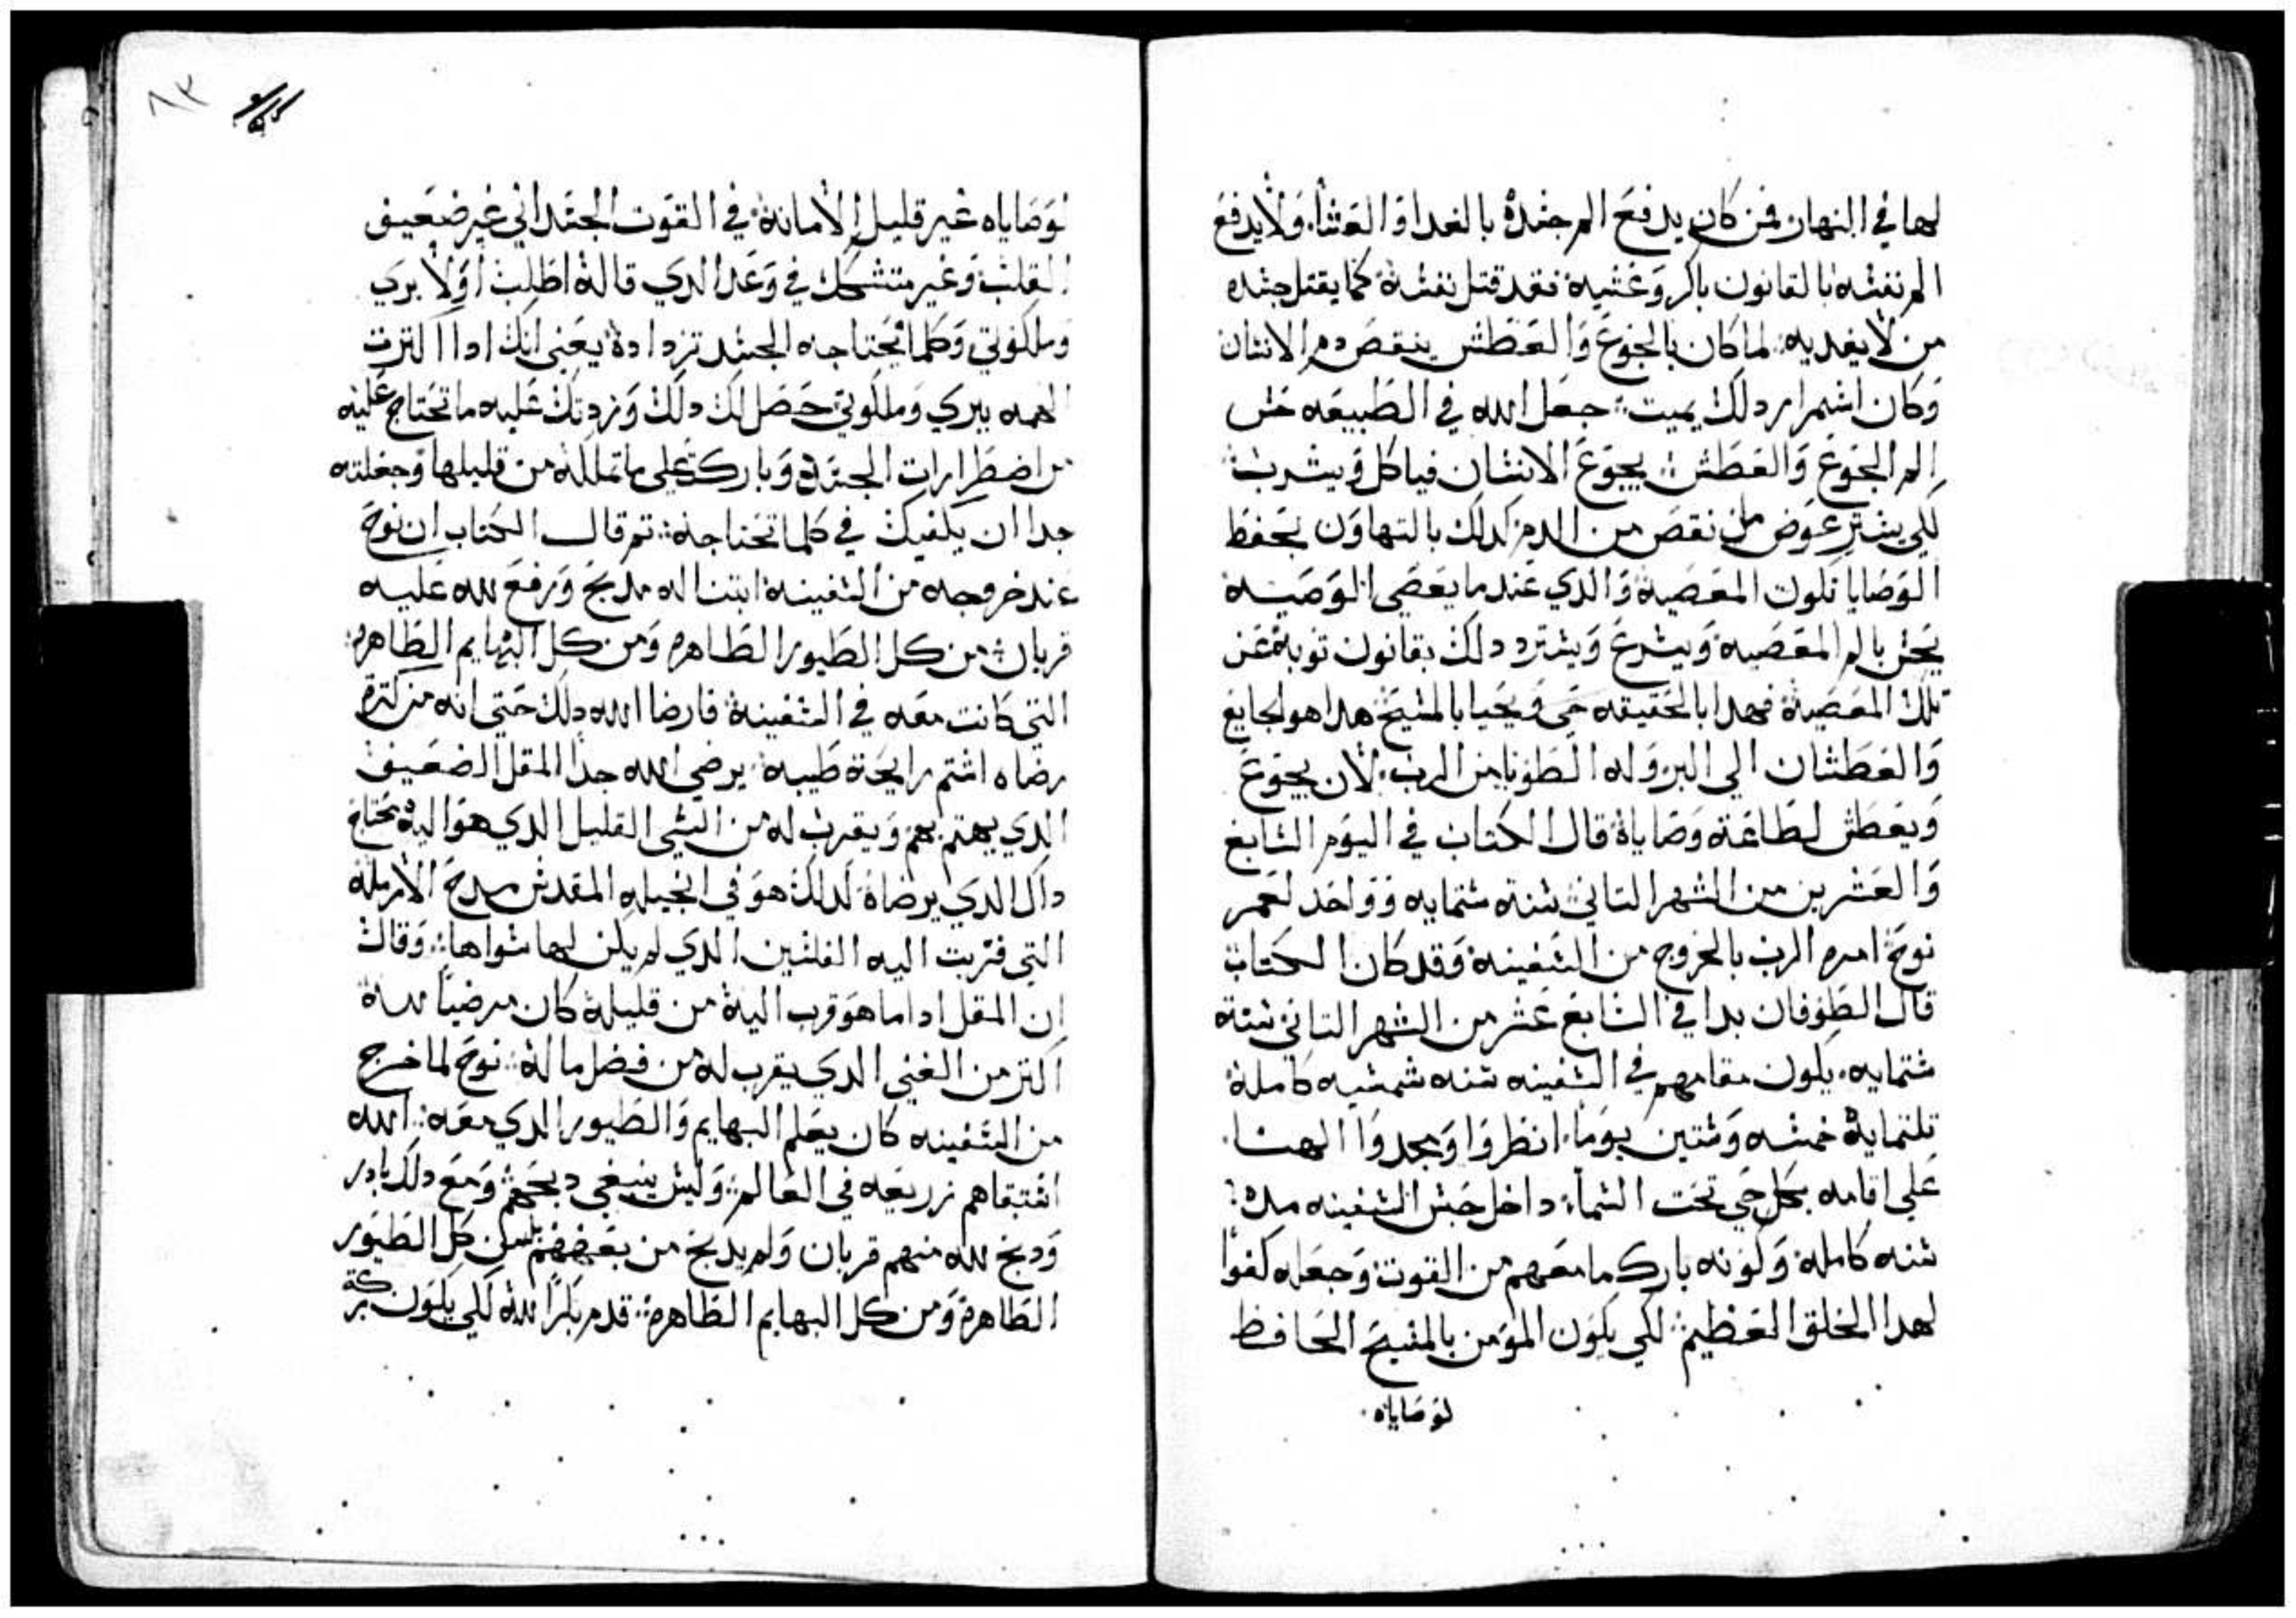 لها في النهار فمن كان يدفع الم جسده بالغدا والعشا ولا يدفع
الم نفسه بالقانون باكر وعشيه فقد قتل نفسه كما يقتل جسده
من لا يغديه لما كان بالجوع والعطش ينقص دم الانسان
وكان استمرار دلك يميت جعل الله في الطبيعه حس
الم الجوع والعطش يجوع الانسان فياكل ويشرب
لكي يسترد عوض ما نقص من الدم كدلك بالتهاون بحفظ
الوصايا تكون المعصية والدي عندما يعصي الوصية
يحس بالم المعصيه ويسرع ويسترد دلك بقانون توبة عن
تلك المعصية فهدا بالحقيقه حي ويحيا بالمسيح هدا هو الجايع
والعطشان الي البر وله الطوبا من الرب لان يجوع
ويعطش لطاعة وصاياة قال الكتاب في اليوم السابع
والعشرين من الشهر التاني سنة ستمايه وواحد لعمر
نوح امره الرب بالخروج من السفينه وقد كان الكتاب
قال الطوفان بدا في السابع عشر من الشهر التاني سنة
ستمايه يكون مقامهم في السفينه سنه شمسيه كاملة
تلتماية خمسه وستين يوما انظروا ومجدوا الهنا
علي اقامه بكل حي تحت السما داخل حبس السفينه مدة
سنه كاملة وكونه بارك ما معهم من القوت وجعله كفوا
لهدا الخلق العظيم لكي يكون المومن بالمسيح الحافظ
لوصاياه
٨٣
لوصاياه غير قليل الامانة في القوت الجسداني غير ضعيف
القلب وغير متشكك في وعد الدي قاله اطلب اولا بري
وملكوتي وكلما يحتاجه الجسد تزدادة يعني انك ادا اكترت
الهمه ببري وملكوتي حصل لك دلك وزدتك عليه ما تحتاج عليه
من اضطرارات الجسد وباركت علي ما تملكه من قليلها وجعلته
جدا ان يكفيك في كلما تحتاجه تم قال الكتاب ان نوح
عند خروجه من السفينة ابتنا له مدبح ورفع لله عليه
قربان من كل الطيور الطاهره ومن كل البهايم الطاهره
التي كانت معه في السفينة فارضا الله دلك حتي انه من كترة
رضاه اشتم رايحة طيبه يرضي الله جدا المقل الضعيف
الدي يهتم بهم ويقرب له من الشي القليل الدي هو اليه محتاج
داك الدي يرضاه لدلك هو في انجيله المقدس مدح الارملة
التي قربت اليه الفلسين الدي لم يكن لها سواها وقال
ان المقل ادا ما هو قرب اليه من قليلة كان مرضيا لله
اكتر من الغني الدي يقرب له من فضل ماله نوح لما خرج
من السفينه كان يعلم البهايم والطيور الدي معه الله
استبقاهم زريعه في العالم وليس ينبغي دبحهم ومع دلك بادر
ودبح لله منهم قربان ولم يدبح من بعضهم بل من كل الطيور
الطاهرة ومن كل البهايم الطاهرة قدم بكرا لله لكي يكون بركة